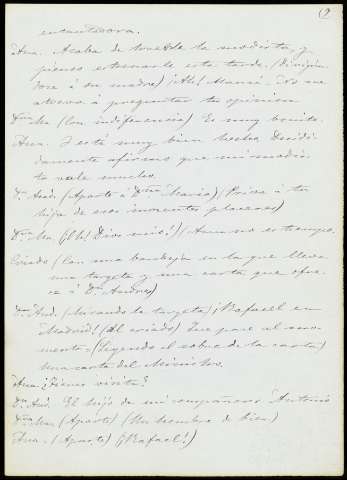 (9
encantadora.
Ana. Acaba de traerle la modista, y
pienso estrenarle esta tarde. (Dirigién-
dose á su madre) ¡Ah! Mamá. No me
atrevo á preguntar tu opinion
Dña Ma. (Con indiferencia) Es muy bonito.
Ana. I está muy bien hecho. Decidi-
damente afirmo que mi modis-
ta vale mucho.
Dn. And. (Aparte á Dña María) (Priva á tu
hija de esos inocentes placeres)
Dña Ma. (¡Oh! Dios mio!) (Aun no es tiempo.
Criado (Con una bandeja en la que lleva
una targeta y una carta que ofre-
ce á Dn. Andres)
Dn. And. (Mirando la targeta) ¡Rafael en
Madrid! (Al criado) Que pase al mo-
mento. (Leyendo el sobre de la carta)
Una carta del Ministro.
Ana. ¿Tienes visita?
Dn. And. El hijo de mi compañero Antonio
Dña Ma. (Aparte) (Un hombre de bien)
Ana. (Aparte) (¡Rafael!)